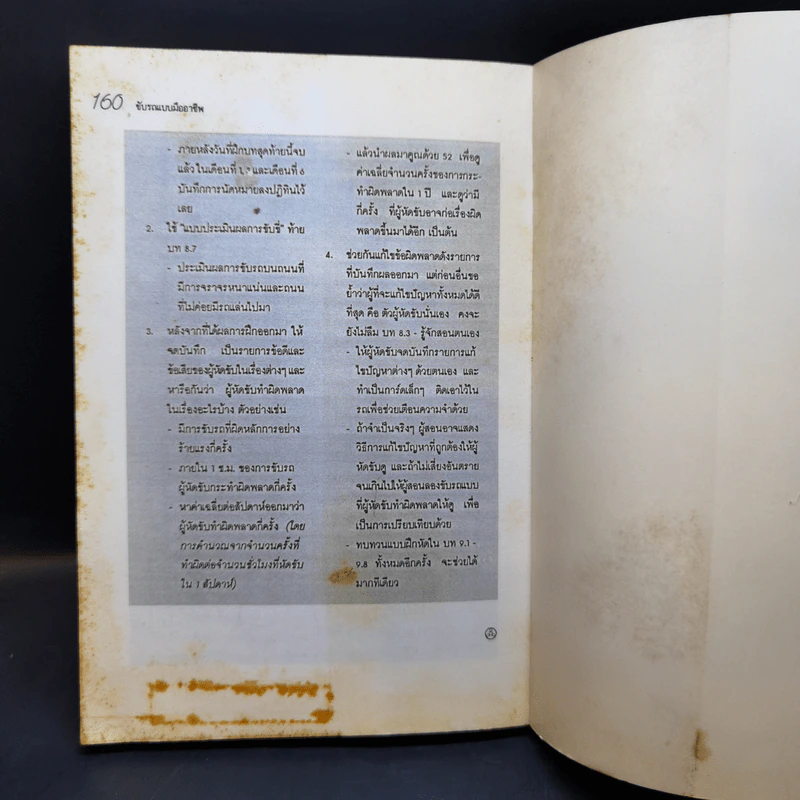 160 ขับรถแบบมืออาชีพ
- ภายหลังวันที่ฝึกบทสุดท้ายนี้จบ
แล้ว ในเดือนที่ 1, และเดือนที่ 6
บันทึกการนัดหมายลงปฏิทินไว้
เลย
2. ใช้ "แบบประเมินผลการขับขี่" ท้าย
บท 8.7
- ประเมินผลการขับรถบนถนนที่
มีการจราจรหนาแน่นและถนน
ที่ไม่ค่อยมีรถแล่นไปมา
3. หลังจากที่ได้ผลการฝึกออกมา ให้
จดบันทึก เป็นรายการข้อดีและ
ข้อเสียของผู้หัดขับในเรื่องต่างๆ และ
หารือกันว่า ผู้หัดขับทำผิดพลาด
ในเรื่องอะไรบ้าง ตัวอย่างเช่น
- มีการขับรถที่ผิดหลักการอย่าง
ร้ายแรงกี่ครั้ง
- ภายใน 1 ช.ม. ของการขับรถ
ผู้หัดขับกระทำผิดพลาดกี่ครั้ง
- หาค่าเฉลี่ยต่อสัปดาห์ออกมาว่า
ผู้หัดขับทำผิดพลาดกี่ครั้ง (โดย
การคำนวณจากจำนวนครั้งที่
ทำผิดต่อจำนวนชั่วโมงที่หัดขับ
ใน 1 สัปดาห์)
- แล้วนำผลมาคูณด้วย 52 เพื่อดู
ค่าเฉลี่ยจำนวนครั้งของการกระ-
ทำผิดพลาดใน 1 ปี และดูว่ามี
กี่ครั้ง ที่ผู้หัดขับอาจก่อเรื่องผิด
พลาดขึ้นมาได้อีก เป็นต้น
4. ช่วยกันแก้ไขข้อผิดพลาดดังรายการ
ที่บันทึกผลออกมา แต่ก่อนอื่นขอ
ย้ำว่าผู้ที่จะแก้ไขปัญหาทั้งหมดได้ดี
ที่สุด คือ ตัวผู้หัดขับนั่นเอง คงจะ
ยังไม่ลืม บท 8.3 - รู้จักสอนตนเอง
- ให้ผู้หัดขับจดบันทึกรายการแก้
ไขปัญหาต่างๆ ด้วยตนเอง และ
ทำเป็นการ์ดเล็กๆ ติดเอาไว้ใน
รถเพื่อช่วยเตือนความจำด้วย
- ถ้าจำเป็นจริงๆ ผู้สอนอาจแสดง
วิธีการแก้ไขปัญหาที่ถูกต้องให้ผู้
หัดขับดู และถ้าไม่เสี่ยงอันตราย
จนเกินไปให้ผู้สอนลองขับรถแบบ
ที่ผู้หัดขับทำผิดพลาดให้ดู เพื่อ
เป็นการเปรียบเทียบด้วย
- ทบทวนแบบฝึกหัดใน บท 9.1-
9.8 ทั้งหมดอีกครั้ง จะช่วยได้
มากทีเดียว